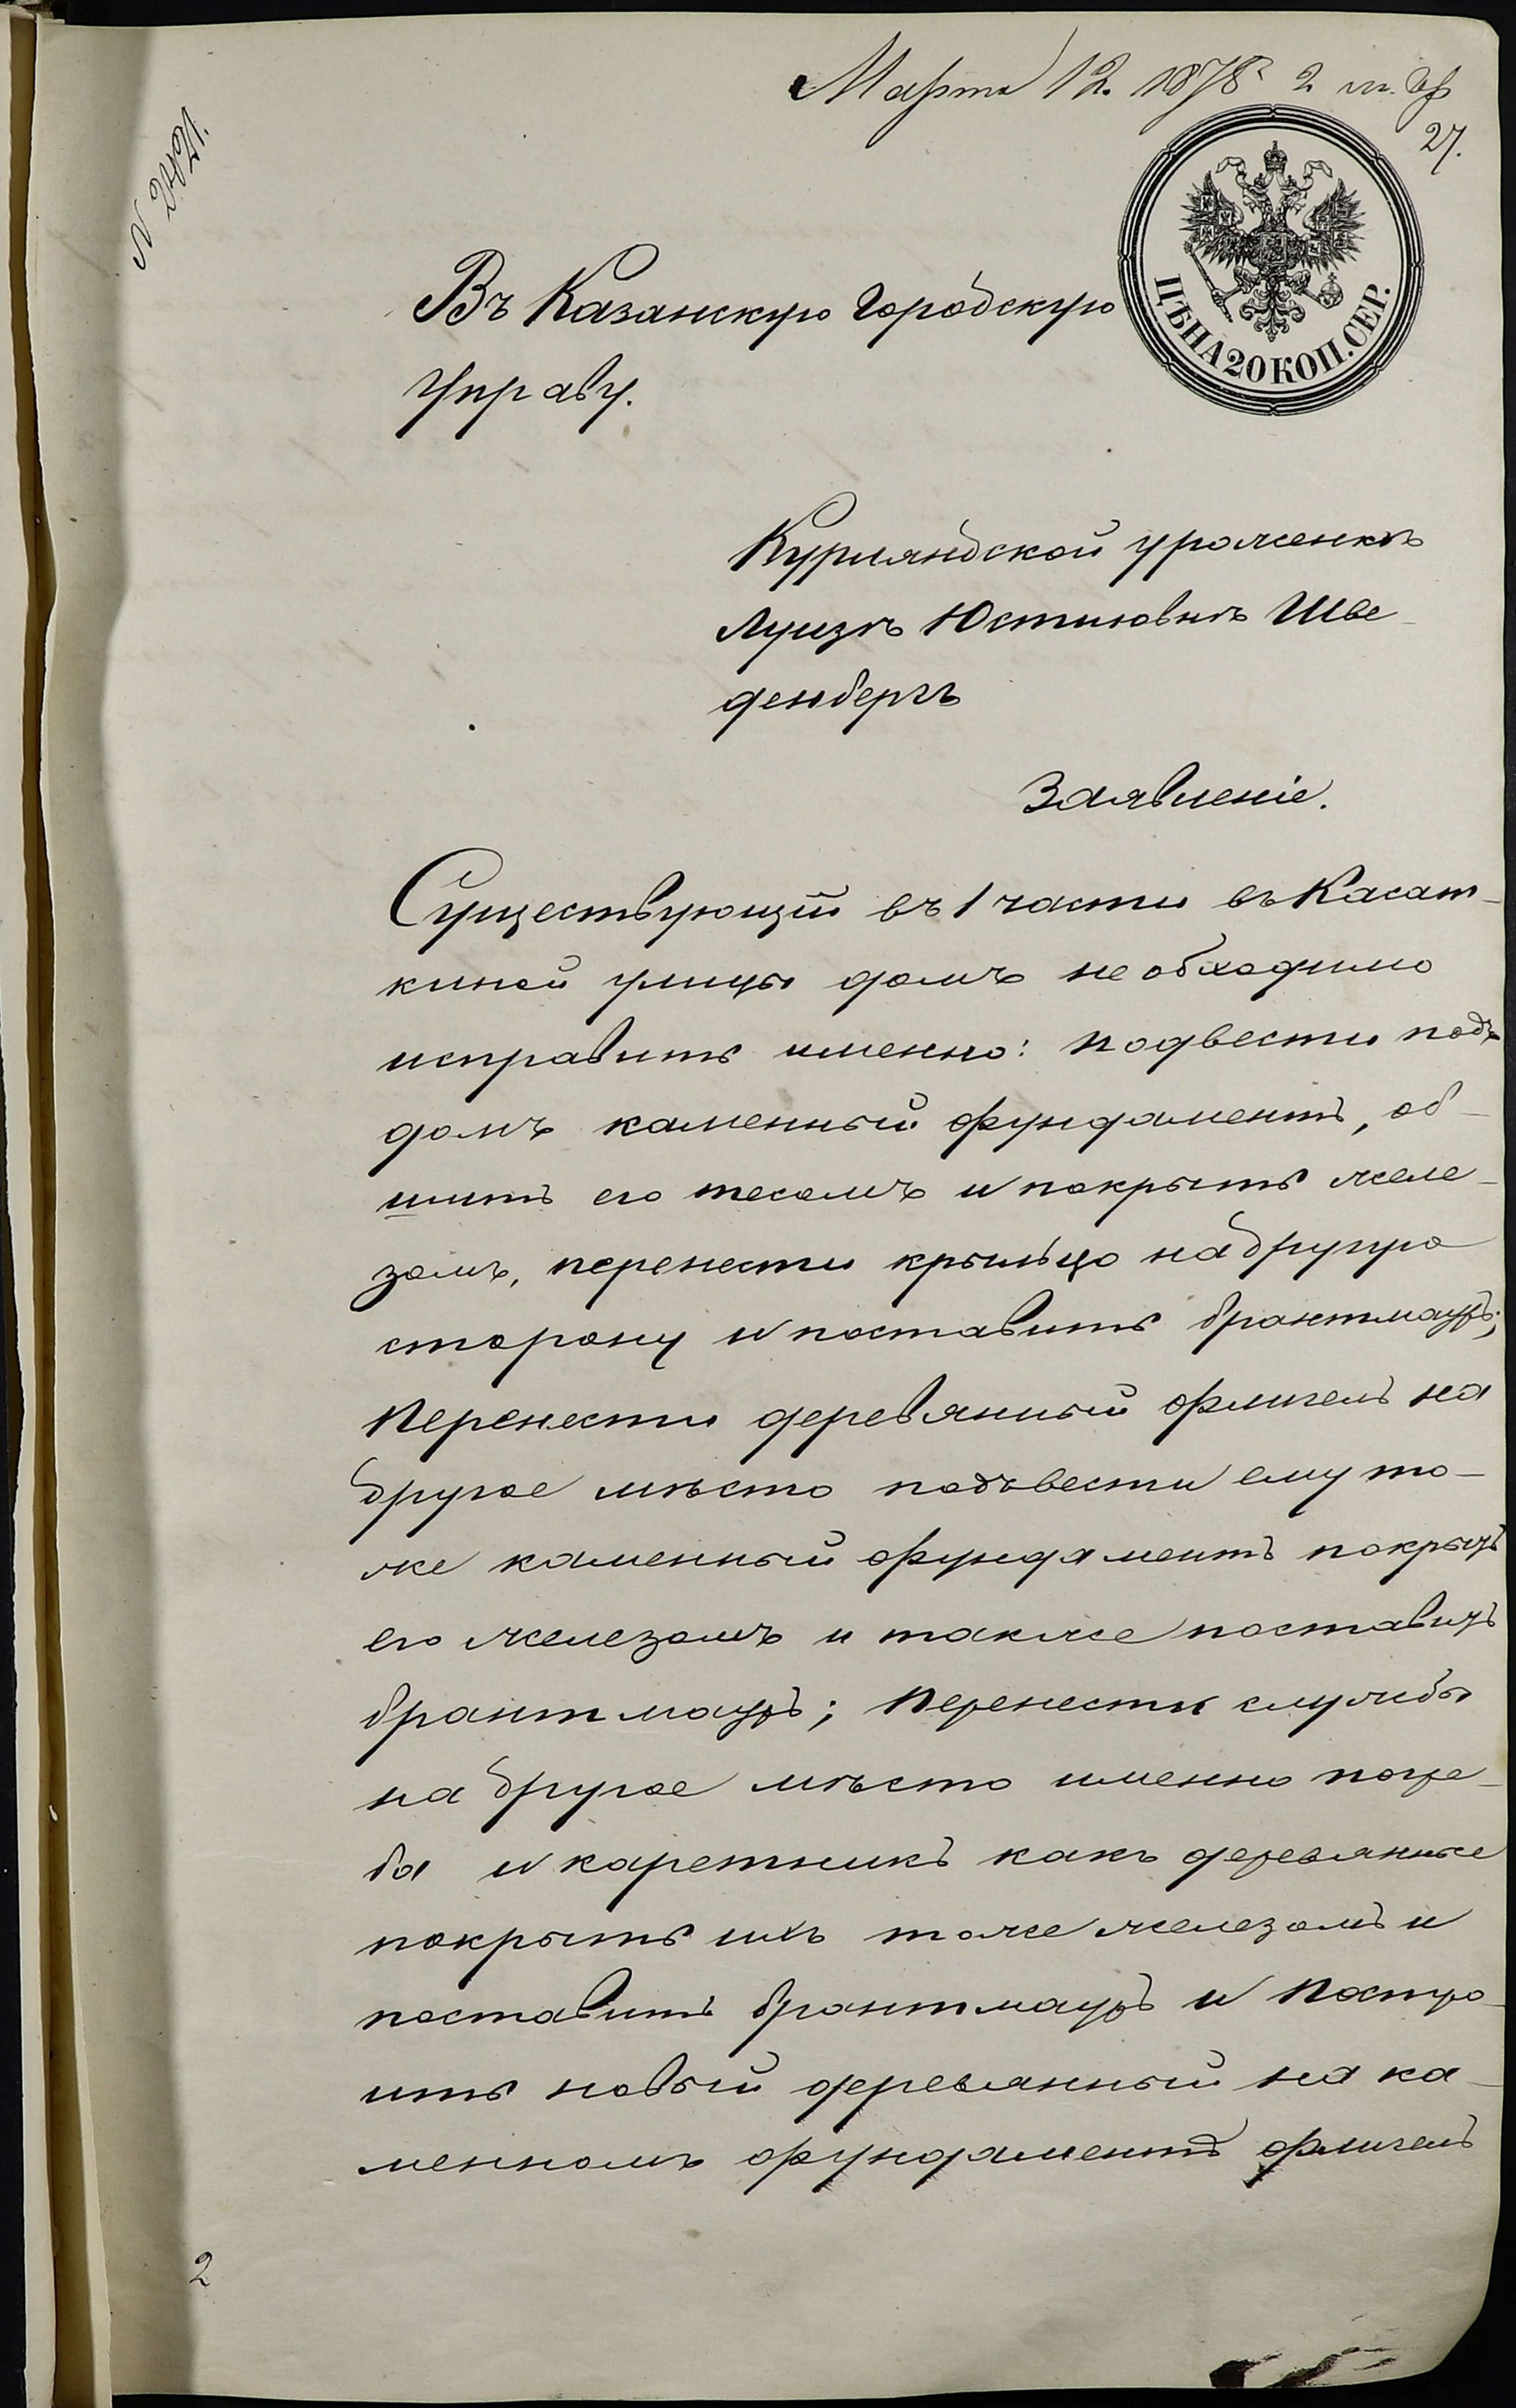 Марта 12. 1878 2
27.
ЦѢНА 20 КОП. СЕР.
Въ Казанскую Городскую
Управу.
Курляндской уроженкѣ
Луизѣ Юстиновнѣ Шве-
денбергъ
Заявленіе.
Существующій въ 1 части въ Касат-
киной улицы домъ необходимо
исправить именно: подвести подъ
домъ каменный фундаментъ, об-
шить его тесомъ и покрыть желе-
зомъ, перенести крыльцо на другую
сторону и поставить брантмауръ;
Перенести деревянный флигель на
другое мѣсто подъвести ему то-
же каменный фундаментъ покрыть
его железомъ и также поставить
брантмауръ; Перенести службы
на другое мѣсто именно погре-
ба и каретникъ какъ деревянные
покрыть ихъ тоже железомъ и
поставить брантмауръ и Постро-
ить новый деревянный на ка-
менномъ фундаментѣ флигель
2